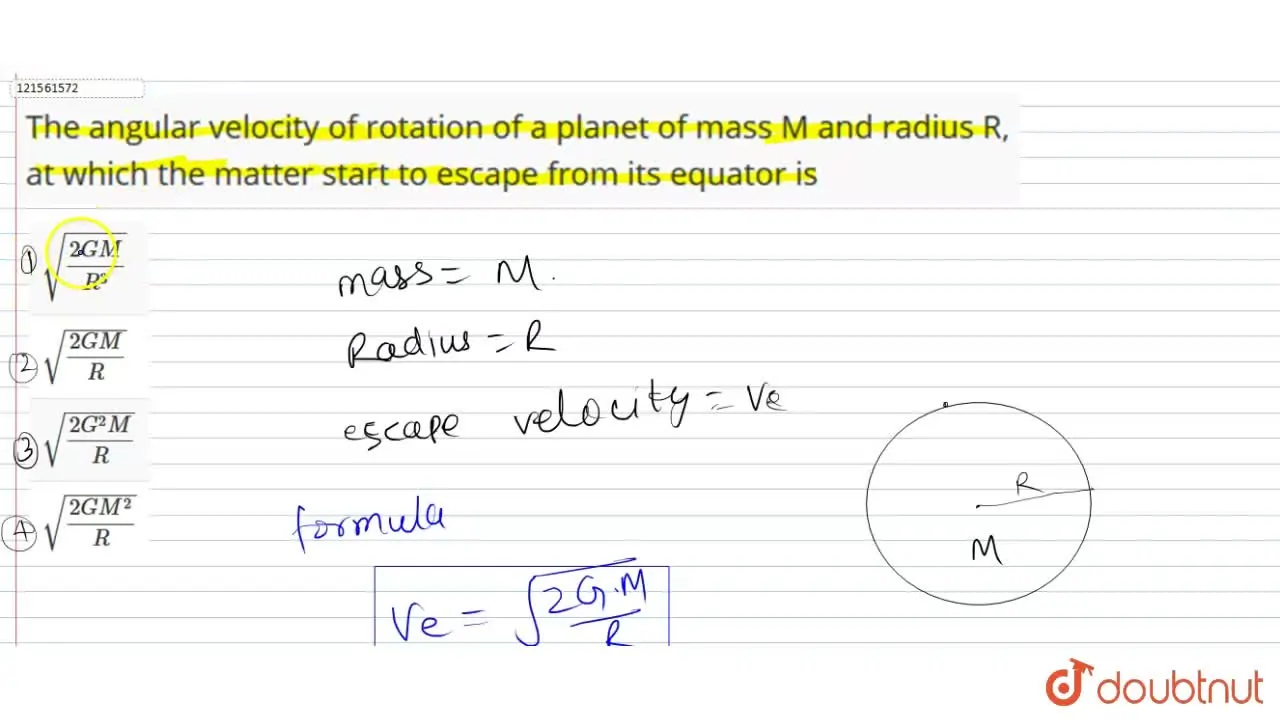 121561572
The angular velocity of rotation of a planet of mass M and radius R,
at which the matter start to escape from its equator is
① √(2GM/R³)
② √(2GM/R)
③ √(2G²M/R)
④ √(2GM²/R)
mass = M.
Radius = R
escape velocity = Ve
formula
Ve = √(2G.M/R)
R
M
doubtnut